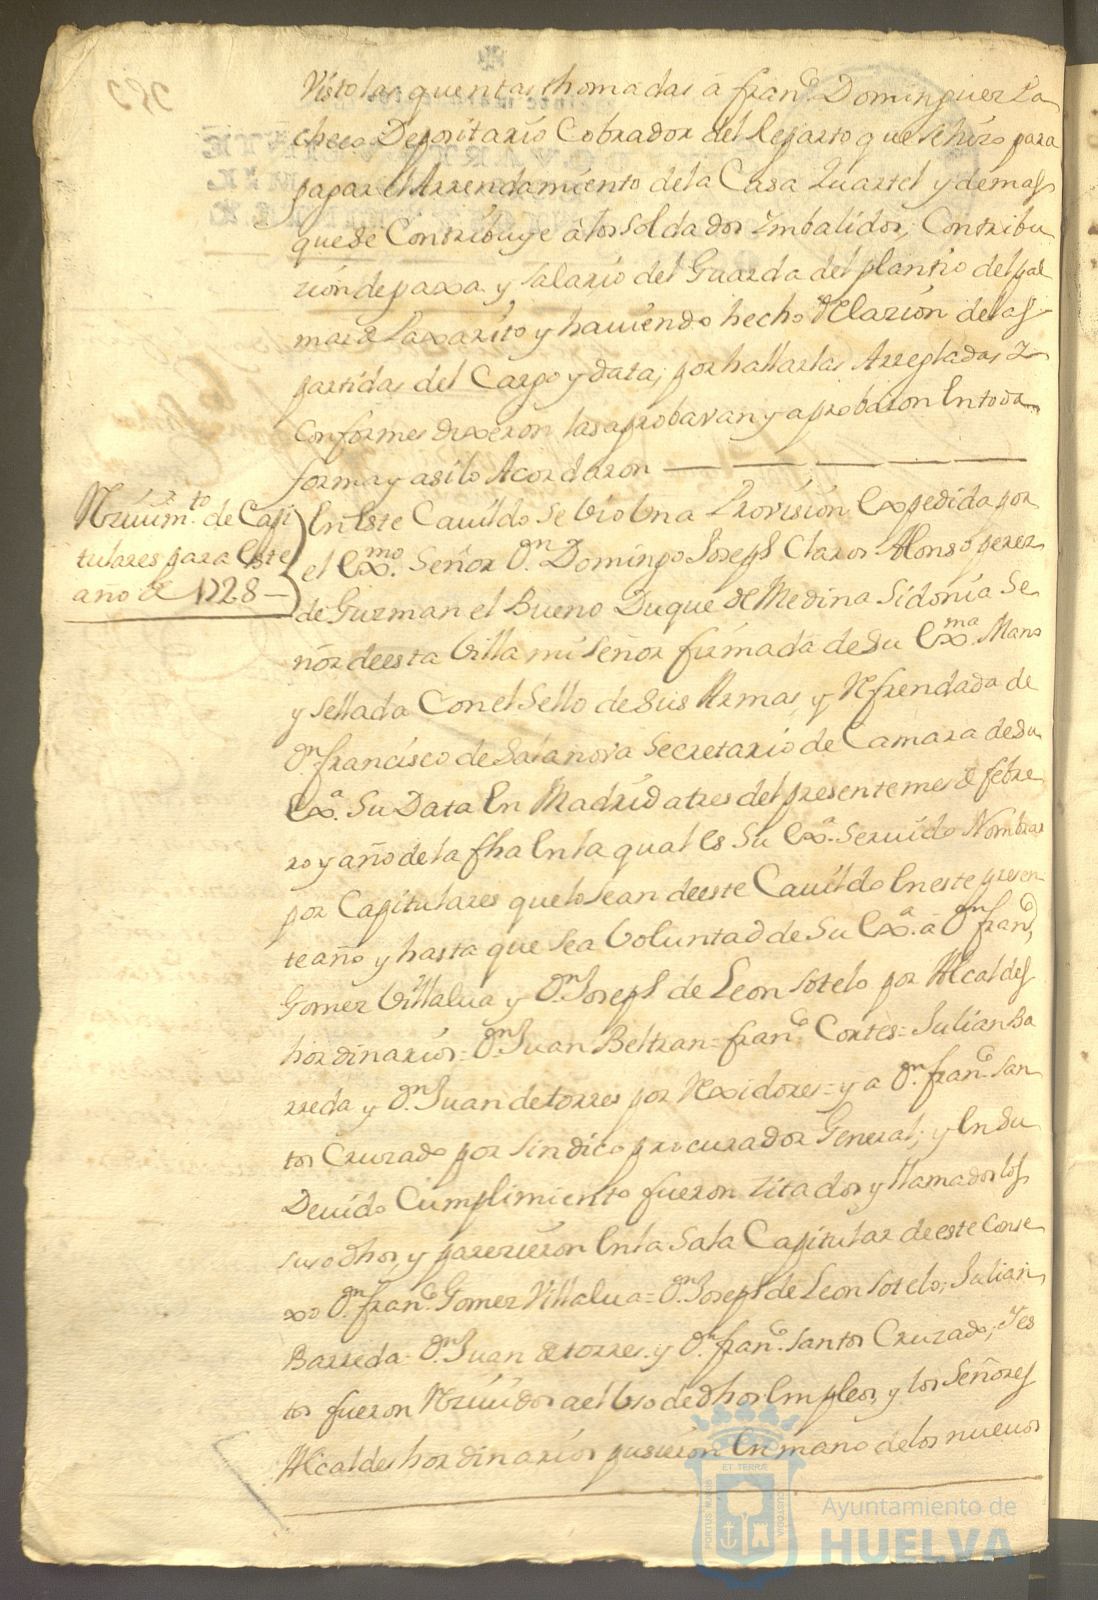 Visto las quentas thomadas á Fran.co Dominguez Pa
checo Depositario Cobrador del Reparto que se hizo para
pagar el Arrendamiento de la Casa Quartel y demas
que se Contribuye á los Soldados Imbalidos, Contribu
zion de paxa y Salario del Guarda del plantio del pal
mar de Laxarito y haviendo hecho Relazion de las
partidas del Cargo y data, por hallarlas Arregladas y
Conformes dixeron las aprobavan y aprobaron En toda
forma y asi lo Acordaron
Rezivim.to de Capi
tulares para Este
año de 1728
En Este Cavildo se Vio Una Provision Expedida por
el Exmo. Señor Dn. Domingo Joseph Claros Alonso perez
de Guzman el Bueno Duque de Medina Sidonia Se
ñor de esta Villa mi Señor firmada de Su Exma. Mano
y Sellada Con el Sello de Sus Armas, y Refrendada de
Dn. francisco de Salanova Secretario de Camara de Su
Exa. Su Data En Madrid a tres del presente mes de febre
ro y año de la fha En la qual Es Su Exa. Servido Nombrar
por Capitulares que lo Sean de este Cavildo En este presen
te año y hasta que Sea Voluntad de Su Exa. á Dn. fran.co
Gomez Villalva y Dn. Joseph de Leon Sotelo por Alcaldes
hordinarios = Dn. Juan Beltran = fran.co Cortes = Julian Ba
rreda y Dn. Juan de torres por Rexidores = y a Dn. fran.co San
tos Cruzado por Sindico procurador General; y En Su
Devido Cumplimiento fueron zitados y llamados los
suso dhos, y parezieron En la Sala Capitular de este Conse
xo Dn. fran.co Gomez Villalva = Dn. Joseph de Leon Sotelo; Julian
Barreda = Dn. Juan de torres y Dn. fran.co Santos Cruzado; y es
tos fueron Rezividos a el Uso de dhos Empleos, y los Señores
Alcaldes hordinarios pusieron En mano de los nuevos
ET TERRÆ
PORTUS MARIS
CUSTODIA
Ayuntamiento de
HUELVA